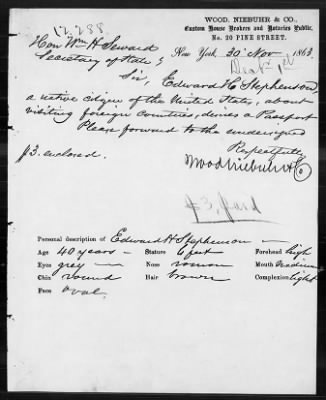 12,288.
WOOD, NIEBUHR & CO.,
Custom House Brokers and Notaries Public,
No. 20 PINE STREET.
Hon Wm H. Seward
New York, 30 Nov 1863
Secretary of State
Sir,
Edward H. Stephenson,
a native citizen of the United States, about
visiting foreign Countries, desires a Passport
Please forward to the undersigned
Respectfully
$3. enclosed.
Wood Niebuhr & Co
$3, paid
Personal description of Edward H Stephenson —
Age 40 years — Stature 6 feet Forehead high
Eyes grey — Nose roman Mouth medium
Chin round Hair brown Complexion light
Face oval